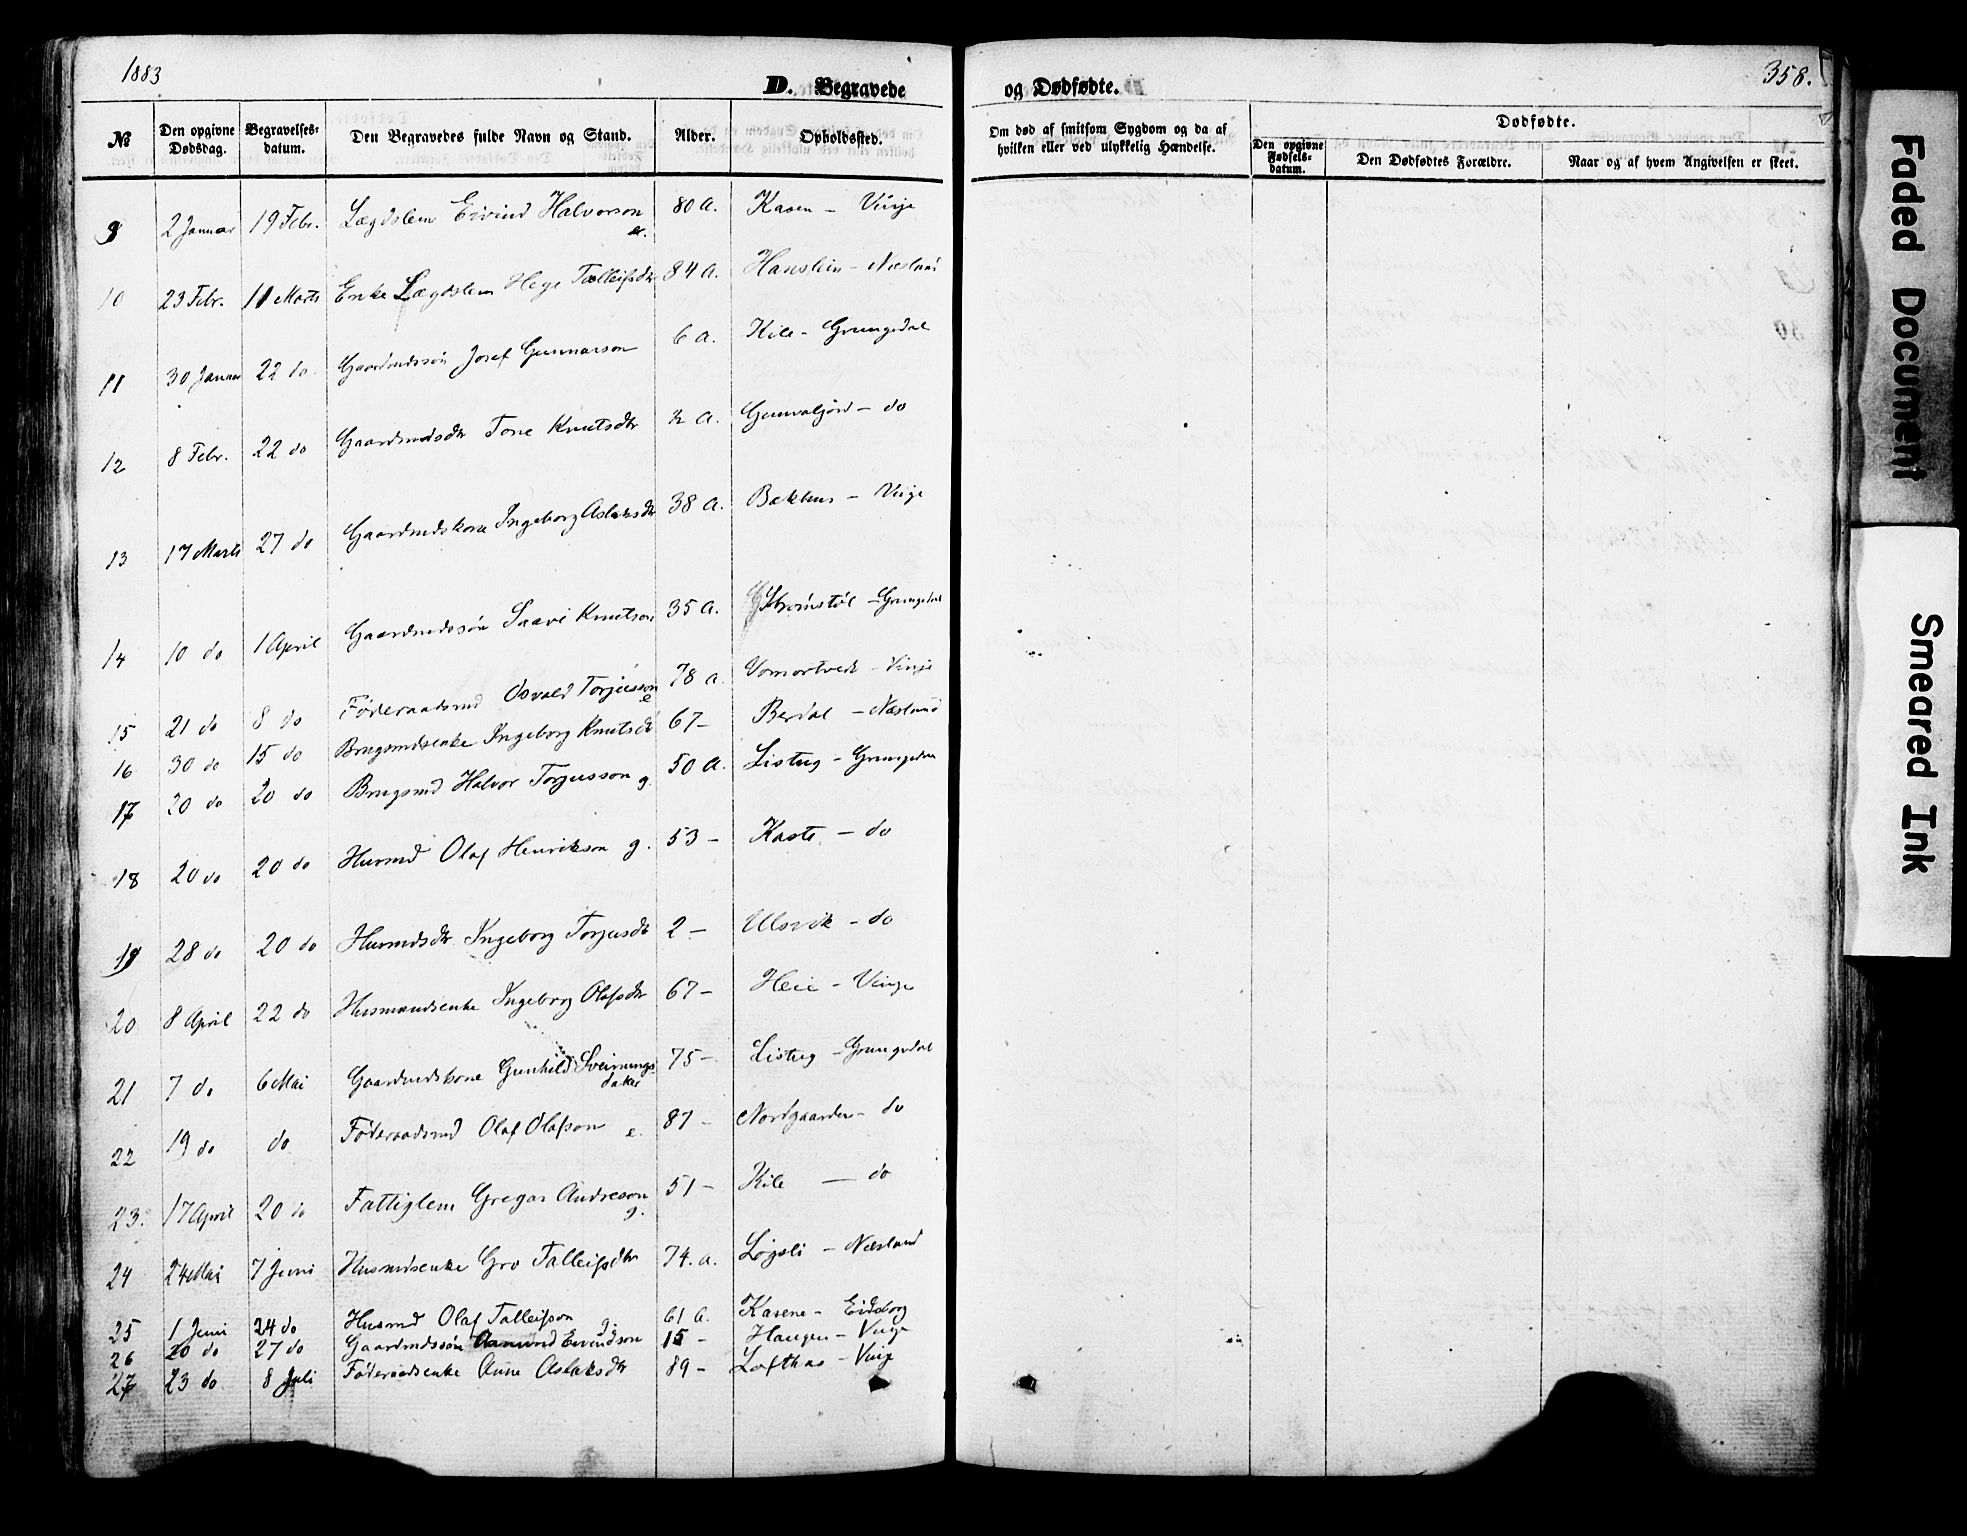 1883
358.
D. Begravede og Dødfødte.
№ Den opgivne Dødsdag. Begravelses-datum. Den Begravedes fulde Navn og Stand. Alder. Opholdssted. Om død af smitsom Sygdom og da af hvilken eller ved ulykkelig Hændelse. Dødfødte.
Den opgivne Fødsels-datum. Den Dødfødtes Forældre. Naar og af hvem Angivelsen er skeet.
9 2 Januar 19 Febr. Lægdslem Eivind Halvorson e. 80 A. Kasen – Vinje
10 23 Febr. 11 Marts Enke Lægdslem Hege Talleifsdtr 84 A. – Næsland
11 30 Januar 22 do. Gaardmdssøn Josef Gunnarson 6 A. Kile – Grungedal
12 8 Febr. 22 do Gaardmdsdtr Tone Knutsdtr A. – do
13 17 Marts 27 do Gaardmdskone Ingeborg Aslaksdtr 38 A. Bækhus – Vinje
14 10 do 1 April Gaardmdssøn Saavi Knutson 35 A. – Grungedal
15 21 do 8 do Føderaadsmd Osvald Torjusson e 78 a. Vomortveit – Vinje
16 30 do 15 do Brugsmdsenke Ingeborg Knutsdt 67 – Berdal – Næsland
17 20 do 20 do Brugsmd Halvor Torjusson g. 50 A. Listug – Grungedal
18 20 do 20 do Husmd Olaf Henrikson g. 53 – Kaste – do
19 28 do 20 do Husmdsdtr. Ingeborg Torjusdt 2 – Ulsvik – do
20 8 April 22 do Husmandsenke Ingeborg Olafsdtr 67 – Heie – Vinje
21 7 do 6 Mai Gaardmdskone Gunhild Sveinungs-datter 75 – Listug – Grungedal
22 19 do do Føderaadsmd Olaf Olafson e. 87 – Nordgaarden – do
23. 17 April 20 do Fattiglem Gregar Andreson g. 51 – Kile – do
24 24 Mai 7 Juni Husmdsenke Gro Talleifsdtr 74. a. Løgsli – Næsland
25 1 Juni 24 do Husmd Olaf Talleifson g. 61 A. Kasene – Eidsborg
26 20 do 27 do Gaardmdssøn Aamund Eivindson 15 – Haugen – Vinje
27 23 do. 8 Juli Føderaadsenke Anne Aslaksdtr 89 – Lofthus – Vinje
Faded Document
Smeared Ink